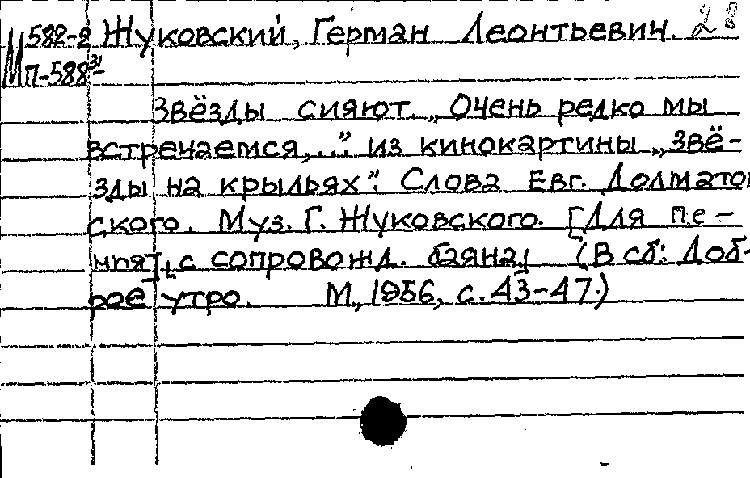 М 588-2 Жуковский, Герман Леонтьевич. 28
МП-588
Звёзды сияют. „Очень редко мы
встречаемся,..." из кинокартины „Звё-
зды на крыльях". Слова Евг. Долматов
ского. Муз. Г. Жуковского. [Для пе-
ния], с сопровожд. баяна] (В сб: Доб-
рое утро. М., 1956, с. 43-47.)